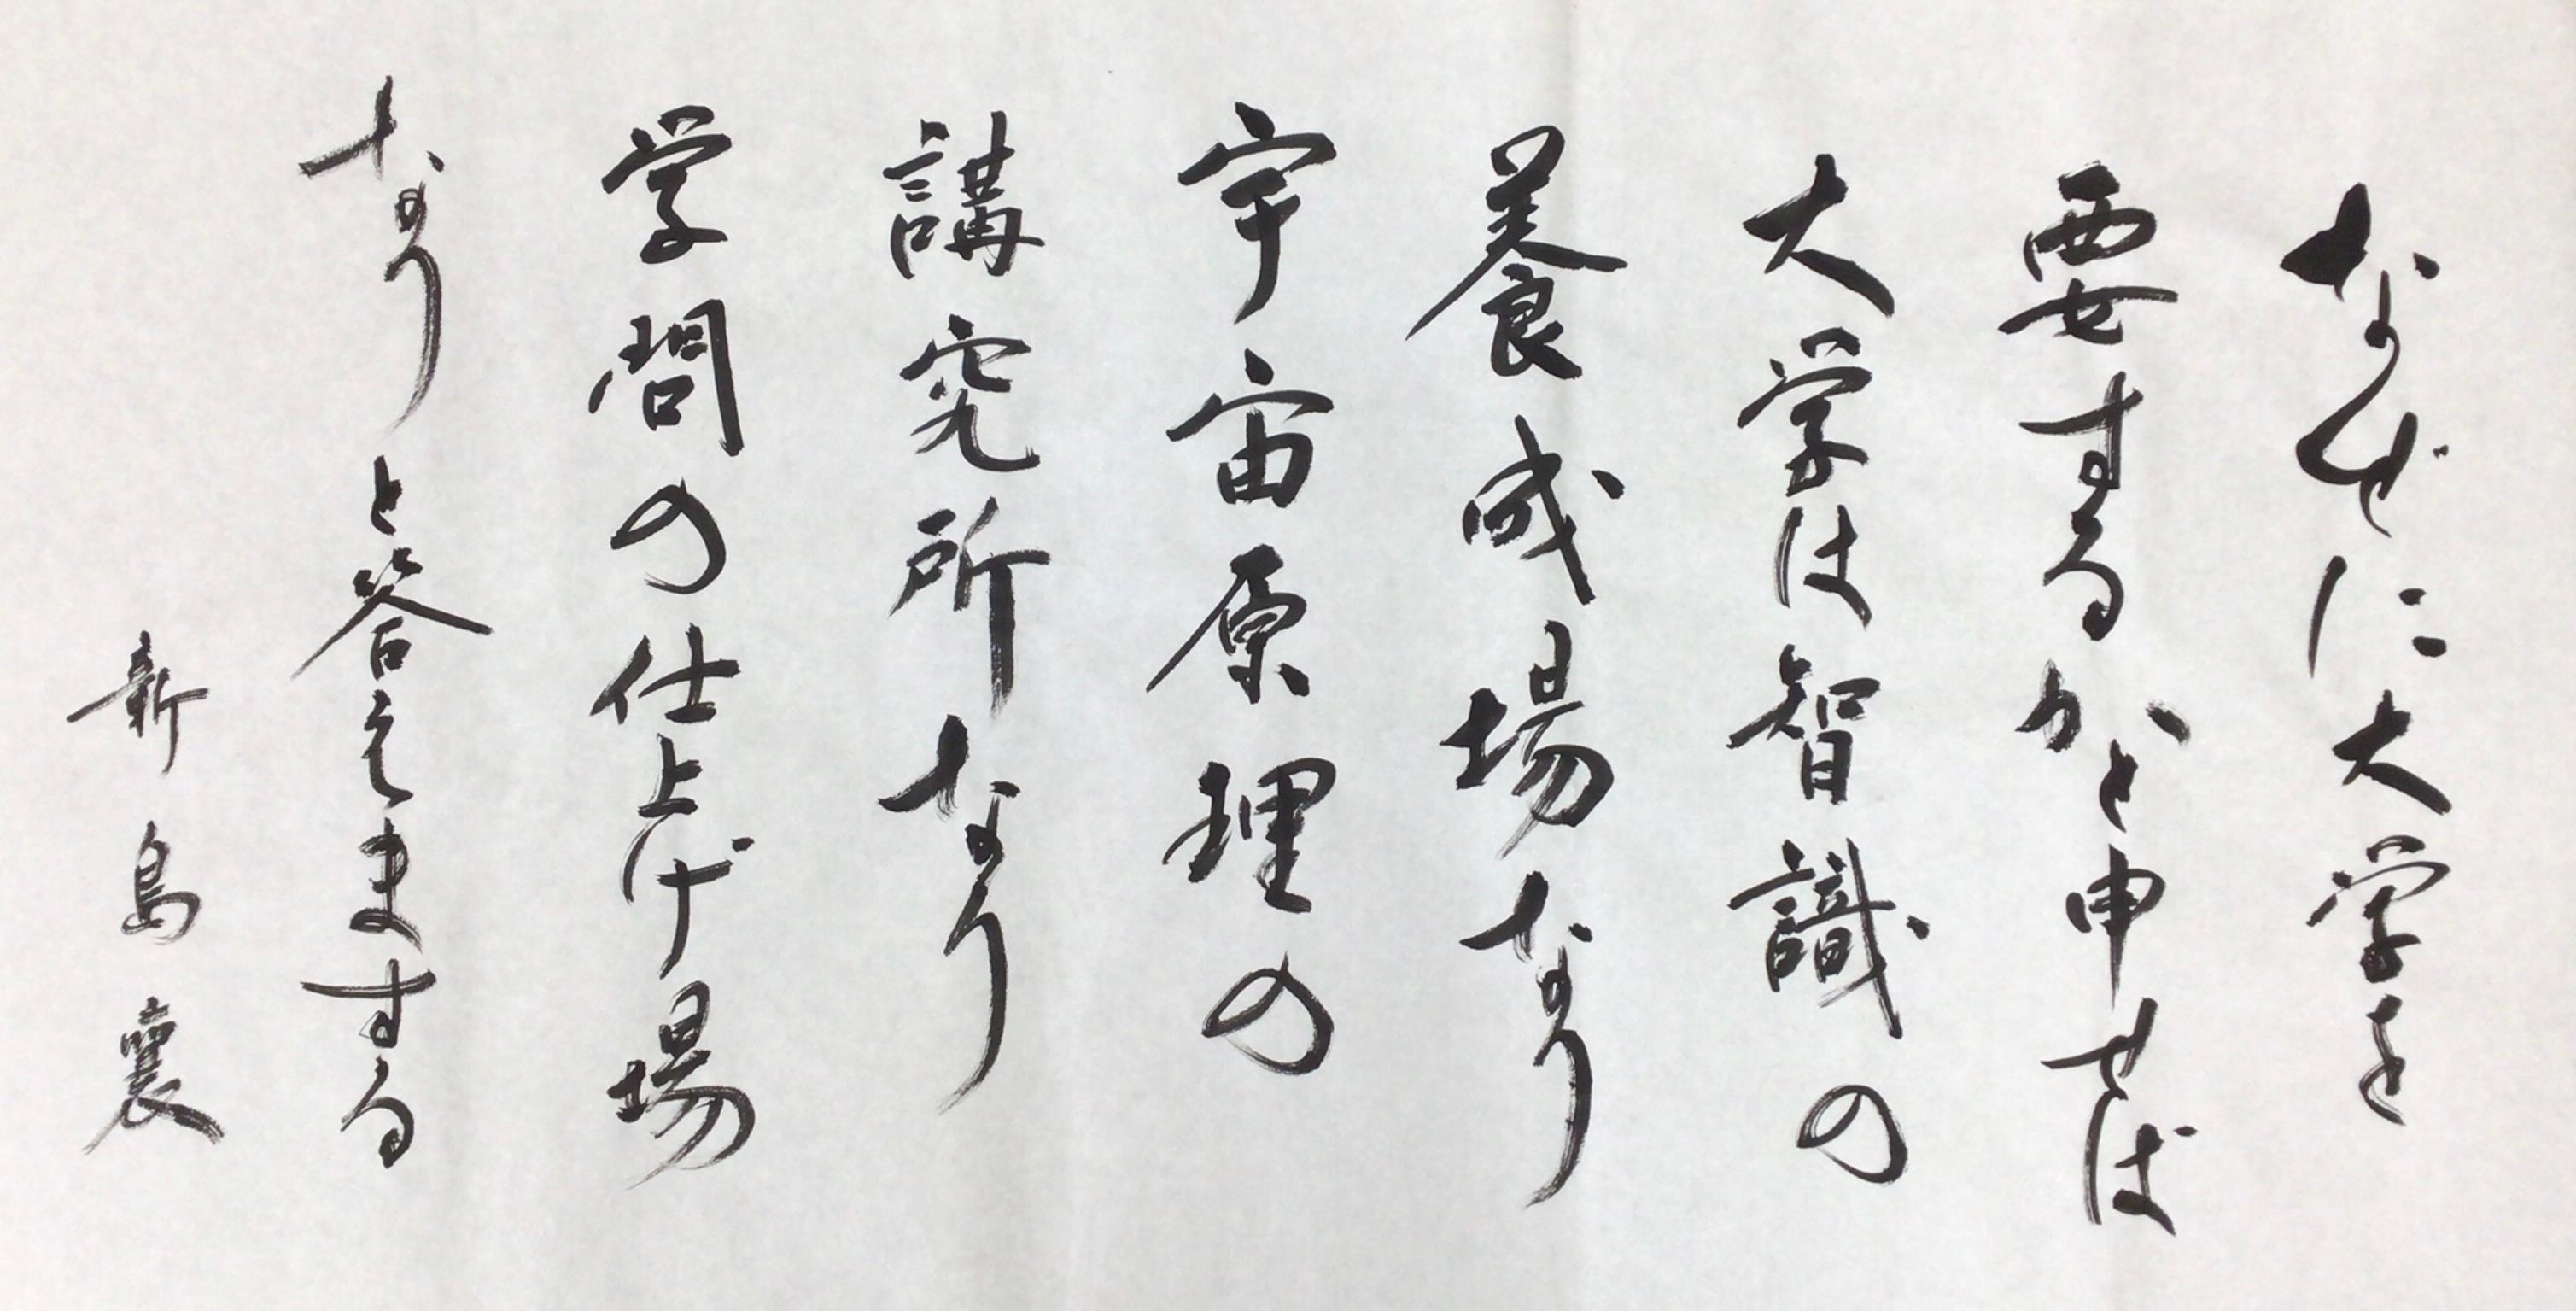 なぜに大学を
要するかと申せば
大学は智識の
養成場なり
宇宙原理の
講究所なり
学問の仕上げ場
なりと答えまする
新島襄